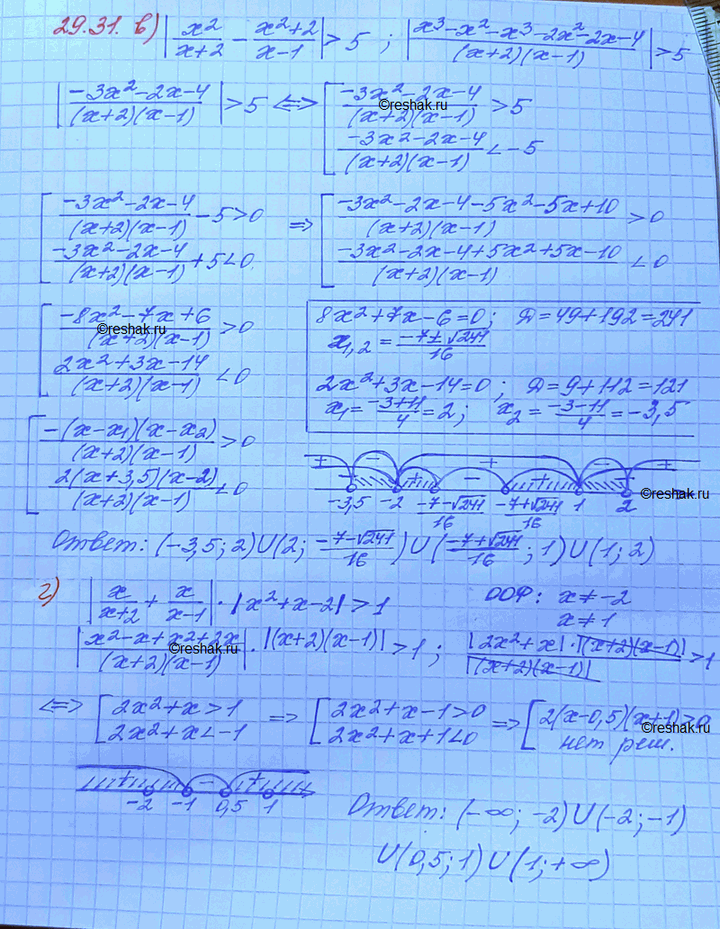 29.31. в) |x²/(x+2) − (x²+2)/(x−1)| > 5 ; |(x³−x²−x³−2x²−2x−4)/((x+2)(x−1))| > 5
|(−3x²−2x−4)/((x+2)(x−1))| > 5 ⟺ [ (−3x²−2x−4)/((x+2)(x−1)) > 5
(−3x²−2x−4)/((x+2)(x−1)) < −5
©reshak.ru
[ (−3x²−2x−4)/((x+2)(x−1)) − 5 > 0 ⇒ [ (−3x²−2x−4−5x²−5x+10)/((x+2)(x−1)) > 0
(−3x²−2x−4)/((x+2)(x−1)) + 5 < 0. (−3x²−2x−4+5x²+5x−10)/((x+2)(x−1)) < 0
[ (−8x²−7x+6)/((x+2)(x−1)) > 0
©reshak.ru
(2x²+3x−14)/((x+2)(x−1)) < 0
8x²+7x−6=0; Д=49+192=241
x₁,₂ = (−7±√241)/16
2x²+3x−14=0; Д=9+112=121
x₁ = (−3+11)/4 = 2; x₂ = (−3−11)/4 = −3,5
[ −(x−x₁)(x−x₂)/((x+2)(x−1)) > 0
2(x+3,5)(x−2)/((x+2)(x−1)) < 0
+ − + − + − +
−3,5 −2 (−7−√241)/16 (−7+√241)/16 1 2
©reshak.ru
Ответ: (−3,5; 2)U(2; (−7−√241)/16)U((−7+√241)/16; 1)U(1; 2)
г) |x/(x+2) + x/(x−1)| · |x²+x−2| > 1 ООФ: x≠−2
x≠1
|(x²−x+x²+2x)/((x+2)(x−1))| · |(x+2)(x−1)| > 1 ; |2x²+x|·|(x+2)(x−1)|/|(x+2)(x−1)| > 1
©reshak.ru
⟺ [ 2x²+x>1 ⇒ [ 2x²+x−1>0 ⇒ [ 2(x−0,5)(x+1)>0
2x²+x<−1 2x²+x+1<0 нет реш.
©reshak.ru
+ − +
−2 −1 0,5 1
Ответ: (−∞; −2)U(−2; −1)
U(0,5; 1)U(1; +∞)